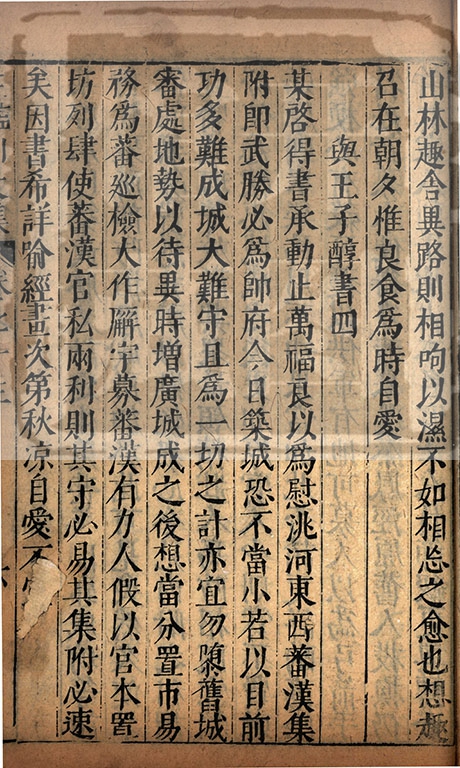 山林趣舎異路則相呴以濕不如相忘之愈也想趣
召在朝夕惟良食為時自愛
與王子醇書四
某啓得書承動止萬福良以為慰洮河東西蕃漢集
附即武勝必為帥府今日築城恐不當小若以目前
功多難成城大難守且為一切之計亦宜勿隳舊城
審處地勢以待異時增廣城成之後想當分置市易
務為蕃巡檢大作廨宇募蕃漢有力人假以官本置
坊列肆使蕃漢官私兩利則其守必易其集附必速
矣因書希詳喻經畫次第秋凉自愛不